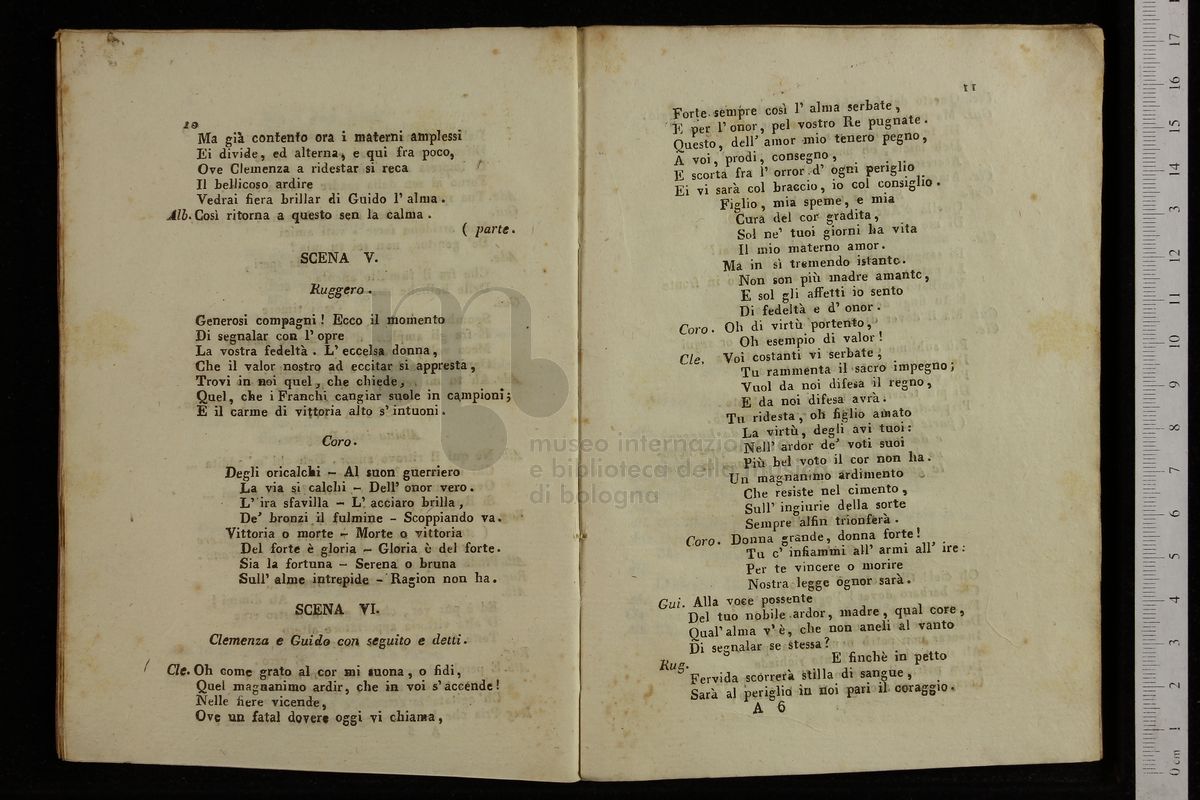 10
Ma già contento ora i materni amplessi
Ei divide, ed alterna, e qui fra poco,
Ove Clemenza a ridestar si reca
Il bellicoso ardire
Vedrai fiera brillar di Guido l' alma .
Alb. Così ritorna a questo sen la calma .
( parte.
SCENA V.
Ruggero .
Generosi compagni ! Ecco il momento
Di segnalar con l' opre
La vostra fedeltà . L' eccelsa donna,
Che il valor nostro ad eccitar si appresta,
Trovi in noi quel, che chiede,
Quel, che i Franchi cangiar suole in campioni;
E il carme di vittoria alto s' intuoni .
Coro .
Degli oricalchi – Al suon guerriero
La via si calchi – Dell' onor vero .
L' ira sfavilla – L' acciaro brilla ,
De' bronzi il fulmine – Scoppiando va .
Vittoria o morte – Morte o vittoria
Del forte è gloria – Gloria è del forte.
Sia la fortuna – Serena o bruna
Sull' alme intrepide – Ragion non ha .
SCENA VI.
Clemenza e Guido con seguito e detti .
Cle. Oh come grato al cor mi suona, o fidi,
Quel magnanimo ardir, che in voi s' accende !
Nelle fiere vicende,
Ove un fatal dovere oggi vi chiama,
11
Forte sempre così l' alma serbate ,
E per l' onor, pel vostro Re pugnate .
Questo, dell' amor mio tenero pegno,
A voi, prodi, consegno ,
E scorta fra l' orror d' ogni periglio
Ei vi sarà col braccio, io col consiglio .
Figlio, mia speme, e mia
Cura del cor gradita,
Sol ne' tuoi giorni ha vita
Il mio materno amor .
Ma in sì tremendo istante .
Non son più madre amante,
E sol gli affetti io sento
Di fedeltà e d' onor .
Coro . Oh di virtù portento,
Oh esempio di valor !
Cle. Voi costanti vi serbate ;
Tu rammenta il sacro impegno;
Vuol da noi difesa il regno,
E da noi difesa avrà .
Tu ridesta, oh figlio amato
La virtù, degli avi tuoi:
Nell' ardor de' voti suoi
Più bel voto il cor non ha .
Un magnanimo ardimento
Che resiste nel cimento ,
Sull' ingiurie della sorte
Sempre alfin trionferà .
Coro . Donna grande, donna forte !
Tu c' infiammi all' armi all' ire :
Per te vincere o morire
Nostra legge ognor sarà .
Gui. Alla voce possente
Del tuo nobile ardor, madre, qual core,
Qual' alma v' è, che non aneli al vanto
Di segnalar se stessa ?
Rug. E finchè in petto
Fervida scorrerà stilla di sangue ,
Sarà al periglio in noi pari il coraggio .
A 6
museo internazio
e biblioteca della musica
di bologna
0 cm 1 2 3 4 5 6 7 8 9 10 11 12 13 14 15 16 17